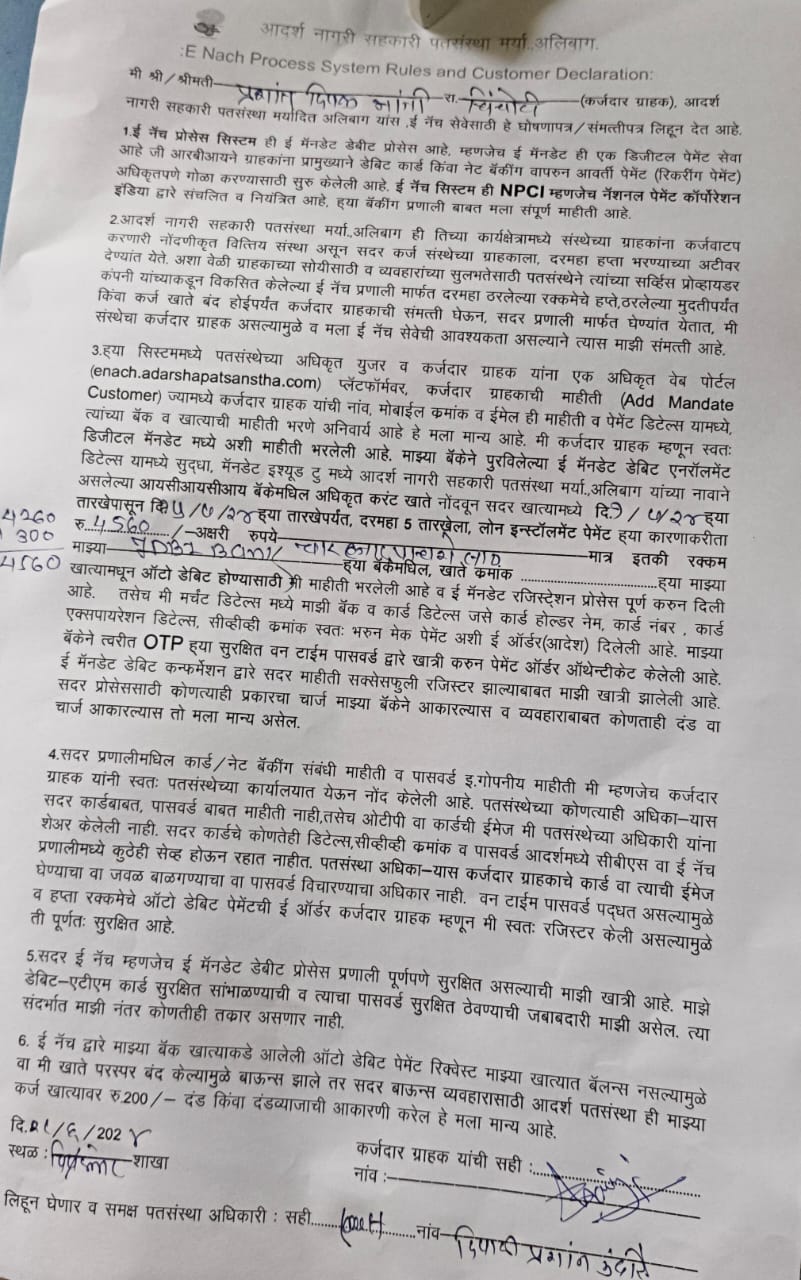 आदर्श नागरी सहकारी पतसंस्था मर्या.,अलिबाग.
:E Nach Process System Rules and Customer Declaration:
मी श्री/श्रीमती प्रशांत दिपक रा. चिंचोटी (कर्जदार ग्राहक), आदर्श
नागरी सहकारी पतसंस्था मर्यादित अलिबाग यांस ,ई नॅच सेवेसाठी हे घोषणापत्र/संमत्तीपत्र लिहून देत आहे.
1.ई नॅच प्रोसेस सिस्टिम ही ई मॅनडेट डेबीट प्रोसेस आहे. म्हणजेच ई मॅनडेट ही एक डिजीटल पेमेंट सेवा
आहे जी आरबीआयने ग्राहकांना प्रामुख्याने डेबिट कार्ड किंवा नेट बॅकींग वापरुन आवर्ती पेमेंट (रिकरींग पेमेंट)
अधिकृतपणे गोळा करण्यासाठी सुरु केलेली आहे. ई नॅच सिस्टम ही NPCI म्हणजेच नॅशनल पेमेंट कॉर्पोरेशन
इंडिया द्वारे संचलित व नियंत्रित आहे. हया बॅकींग प्रणाली बाबत मला संपूर्ण माहीती आहे.
2.आदर्श नागरी सहकारी पतसंस्था मर्या.,अलिबाग ही तिच्या कार्यक्षेत्रामध्ये संस्थेच्या ग्राहकांना कर्जवाटप
करणारी नोंदणीकृत वित्तिय संस्था असून सदर कर्ज संस्थेच्या ग्राहकाला, दरमहा हप्ता भरण्याच्या अटीवर
देण्यांत येते. अशा वेळी ग्राहकाच्या सोयीसाठी व व्यवहारांच्या सुलभतेसाठी पतसंस्थेने त्यांच्या सर्व्हिस प्रोव्हायडर
कंपनी यांच्याकडून विकसित केलेल्या ई नॅच प्रणाली मार्फत दरमहा ठरलेल्या रक्कमेचे हप्ते,ठरलेल्या मुदतीपर्यंत
किंवा कर्ज खाते बंद होईपर्यंत कर्जदार ग्राहकाची संमत्ती घेऊन, सदर प्रणाली मार्फत घेण्यांत येतात, मी
संस्थेचा कर्जदार ग्राहक असल्यामुळे व मला ई नॅच सेवेची आवश्यकता असल्याने त्यास माझी संमत्ती आहे.
3.हया सिस्टममध्ये पतसंस्थेच्या अधिकृत युजर व कर्जदार ग्राहक यांना एक अधिकृत वेब पोर्टल
(enach.adarshapatsanstha.com) प्लॅटफॉर्मवर, कर्जदार ग्राहकाची माहीती (Add Mandate
Customer) ज्यामध्ये कर्जदार ग्राहक यांची नांव, मोबाईल क्रमांक व ईमेल ही माहीती व पेमेंट डिटेल्स यामध्ये,
त्यांच्या बॅक व खात्याची माहीती भरणे अनिवार्य आहे हे मला मान्य आहे. मी कर्जदार ग्राहक म्हणून स्वतः
डिजीटल मॅनडेट मध्ये अशी माहीती भरलेली आहे. माझ्या बॅकेने पुरविलेल्या ई मॅनडेट डेबिट एनरॉलमेंट
डिटेल्स यामध्ये सुद्धा, मॅनडेट इश्यूड टु मध्ये आदर्श नागरी सहकारी पतसंस्था मर्या.,अलिबाग यांच्या नावाने
असलेल्या आयसीआयसीआय बॅकेमधिल अधिकृत करंट खाते नोंदवून सदर खात्यामध्ये दि. हया
तारखेपासून दि. हया तारखेपर्यंत, दरमहा 5 तारखेला, लोन इन्स्टॉलमेंट पेमेंट हया कारणाकरीता
4260 रु.4560/-अक्षरी रुपये मात्र इतकी रक्कम
300 माझ्या IDBI Bank हया बॅकेमधिल, खाते क्रमांक हया माझ्या
4560 खात्यामधून ऑटो डेबिट होण्यासाठी मी माहीती भरलेली आहे व ई मॅनडेट रजिस्ट्रेशन प्रोसेस पूर्ण करुन दिली
आहे. तसेच मी मर्चंट डिटेल्स मध्ये माझी बॅक व कार्ड डिटेल्स जसे कार्ड होल्डर नेम, कार्ड नंबर , कार्ड
एक्सपायरेशन डिटेल्स, सीव्हीव्ही क्रमांक स्वतः भरुन मेक पेमेंट अशी ई ऑर्डर(आदेश) दिलेली आहे. माझ्या
बॅकेने त्वरीत OTP हया सुरक्षित वन टाईम पासवर्ड द्वारे खात्री करुन पेमेंट ऑर्डर ऑथेन्टीकेट केलेली आहे.
ई मॅनडेट डेबिट कन्फर्मेशन द्वारे सदर माहीती सक्सेसफुली रजिस्टर झाल्याबाबत माझी खात्री झालेली आहे.
सदर प्रोसेससाठी कोणत्याही प्रकारचा चार्ज माझ्या बॅकेने आकारल्यास व व्यवहाराबाबत कोणताही दंड वा
चार्ज आकारल्यास तो मला मान्य असेल.
4.सदर प्रणालीमधिल कार्ड/नेट बॅकींग संबंधी माहीती व पासवर्ड इ.गोपनीय माहीती मी म्हणजेच कर्जदार
ग्राहक यांनी स्वतः पतसंस्थेच्या कार्यालयात येऊन नोंद केलेली आहे. पतसंस्थेच्या कोणत्याही अधिका–यास
सदर कार्डबाबत, पासवर्ड बाबत माहीती नाही,तसेच ओटीपी वा कार्डची ईमेज मी पतसंस्थेच्या अधिकारी यांना
शेअर केलेली नाही. सदर कार्डचे कोणतेही डिटेल्स,सीव्हीव्ही क्रमांक व पासवर्ड आदर्शमध्ये सीबीएस वा ई नॅच
प्रणालीमध्ये कुठेही सेव्ह होऊन रहात नाहीत. पतसंस्था अधिका–यास कर्जदार ग्राहकाचे कार्ड वा त्याची ईमेज
घेण्याचा वा जवळ बाळगण्याचा वा पासवर्ड विचारण्याचा अधिकार नाही. वन टाईम पासवर्ड पद्धत असल्यामुळे
व हप्ता रक्कमेचे ऑटो डेबिट पेमेंटची ई ऑर्डर कर्जदार ग्राहक म्हणून मी स्वतः रजिस्टर केली असल्यामुळे
ती पूर्णतः सुरक्षित आहे.
5.सदर ई नॅच म्हणजेच ई मॅनडेट डेबीट प्रोसेस प्रणाली पूर्णपणे सुरक्षित असल्याची माझी खात्री आहे. माझे
डेबिट–एटीएम कार्ड सुरक्षित सांभाळण्याची व त्याचा पासवर्ड सुरक्षित ठेवण्याची जबाबदारी माझी असेल. त्या
संदर्भात माझी नंतर कोणतीही तकार असणार नाही.
6. ई नॅच द्वारे माझ्या बॅक खात्याकडे आलेली ऑटो डेबिट पेमेंट रिक्वेस्ट माझ्या खात्यात बॅलन्स नसल्यामुळे
वा मी खाते परस्पर बंद केल्यामुळे बाऊन्स झाले तर सदर बाऊन्स व्यवहारासाठी आदर्श पतसंस्था ही माझ्या
कर्ज खात्यावर रु.200/– दंड किंवा दंडव्याजाची आकारणी करेल हे मला मान्य आहे.
दि. /६/202४
स्थळ : शाखा
कर्जदार ग्राहक यांची सही :
नांव :
लिहून घेणार व समक्ष पतसंस्था अधिकारी : सही नांव दिपाली प्रशांत